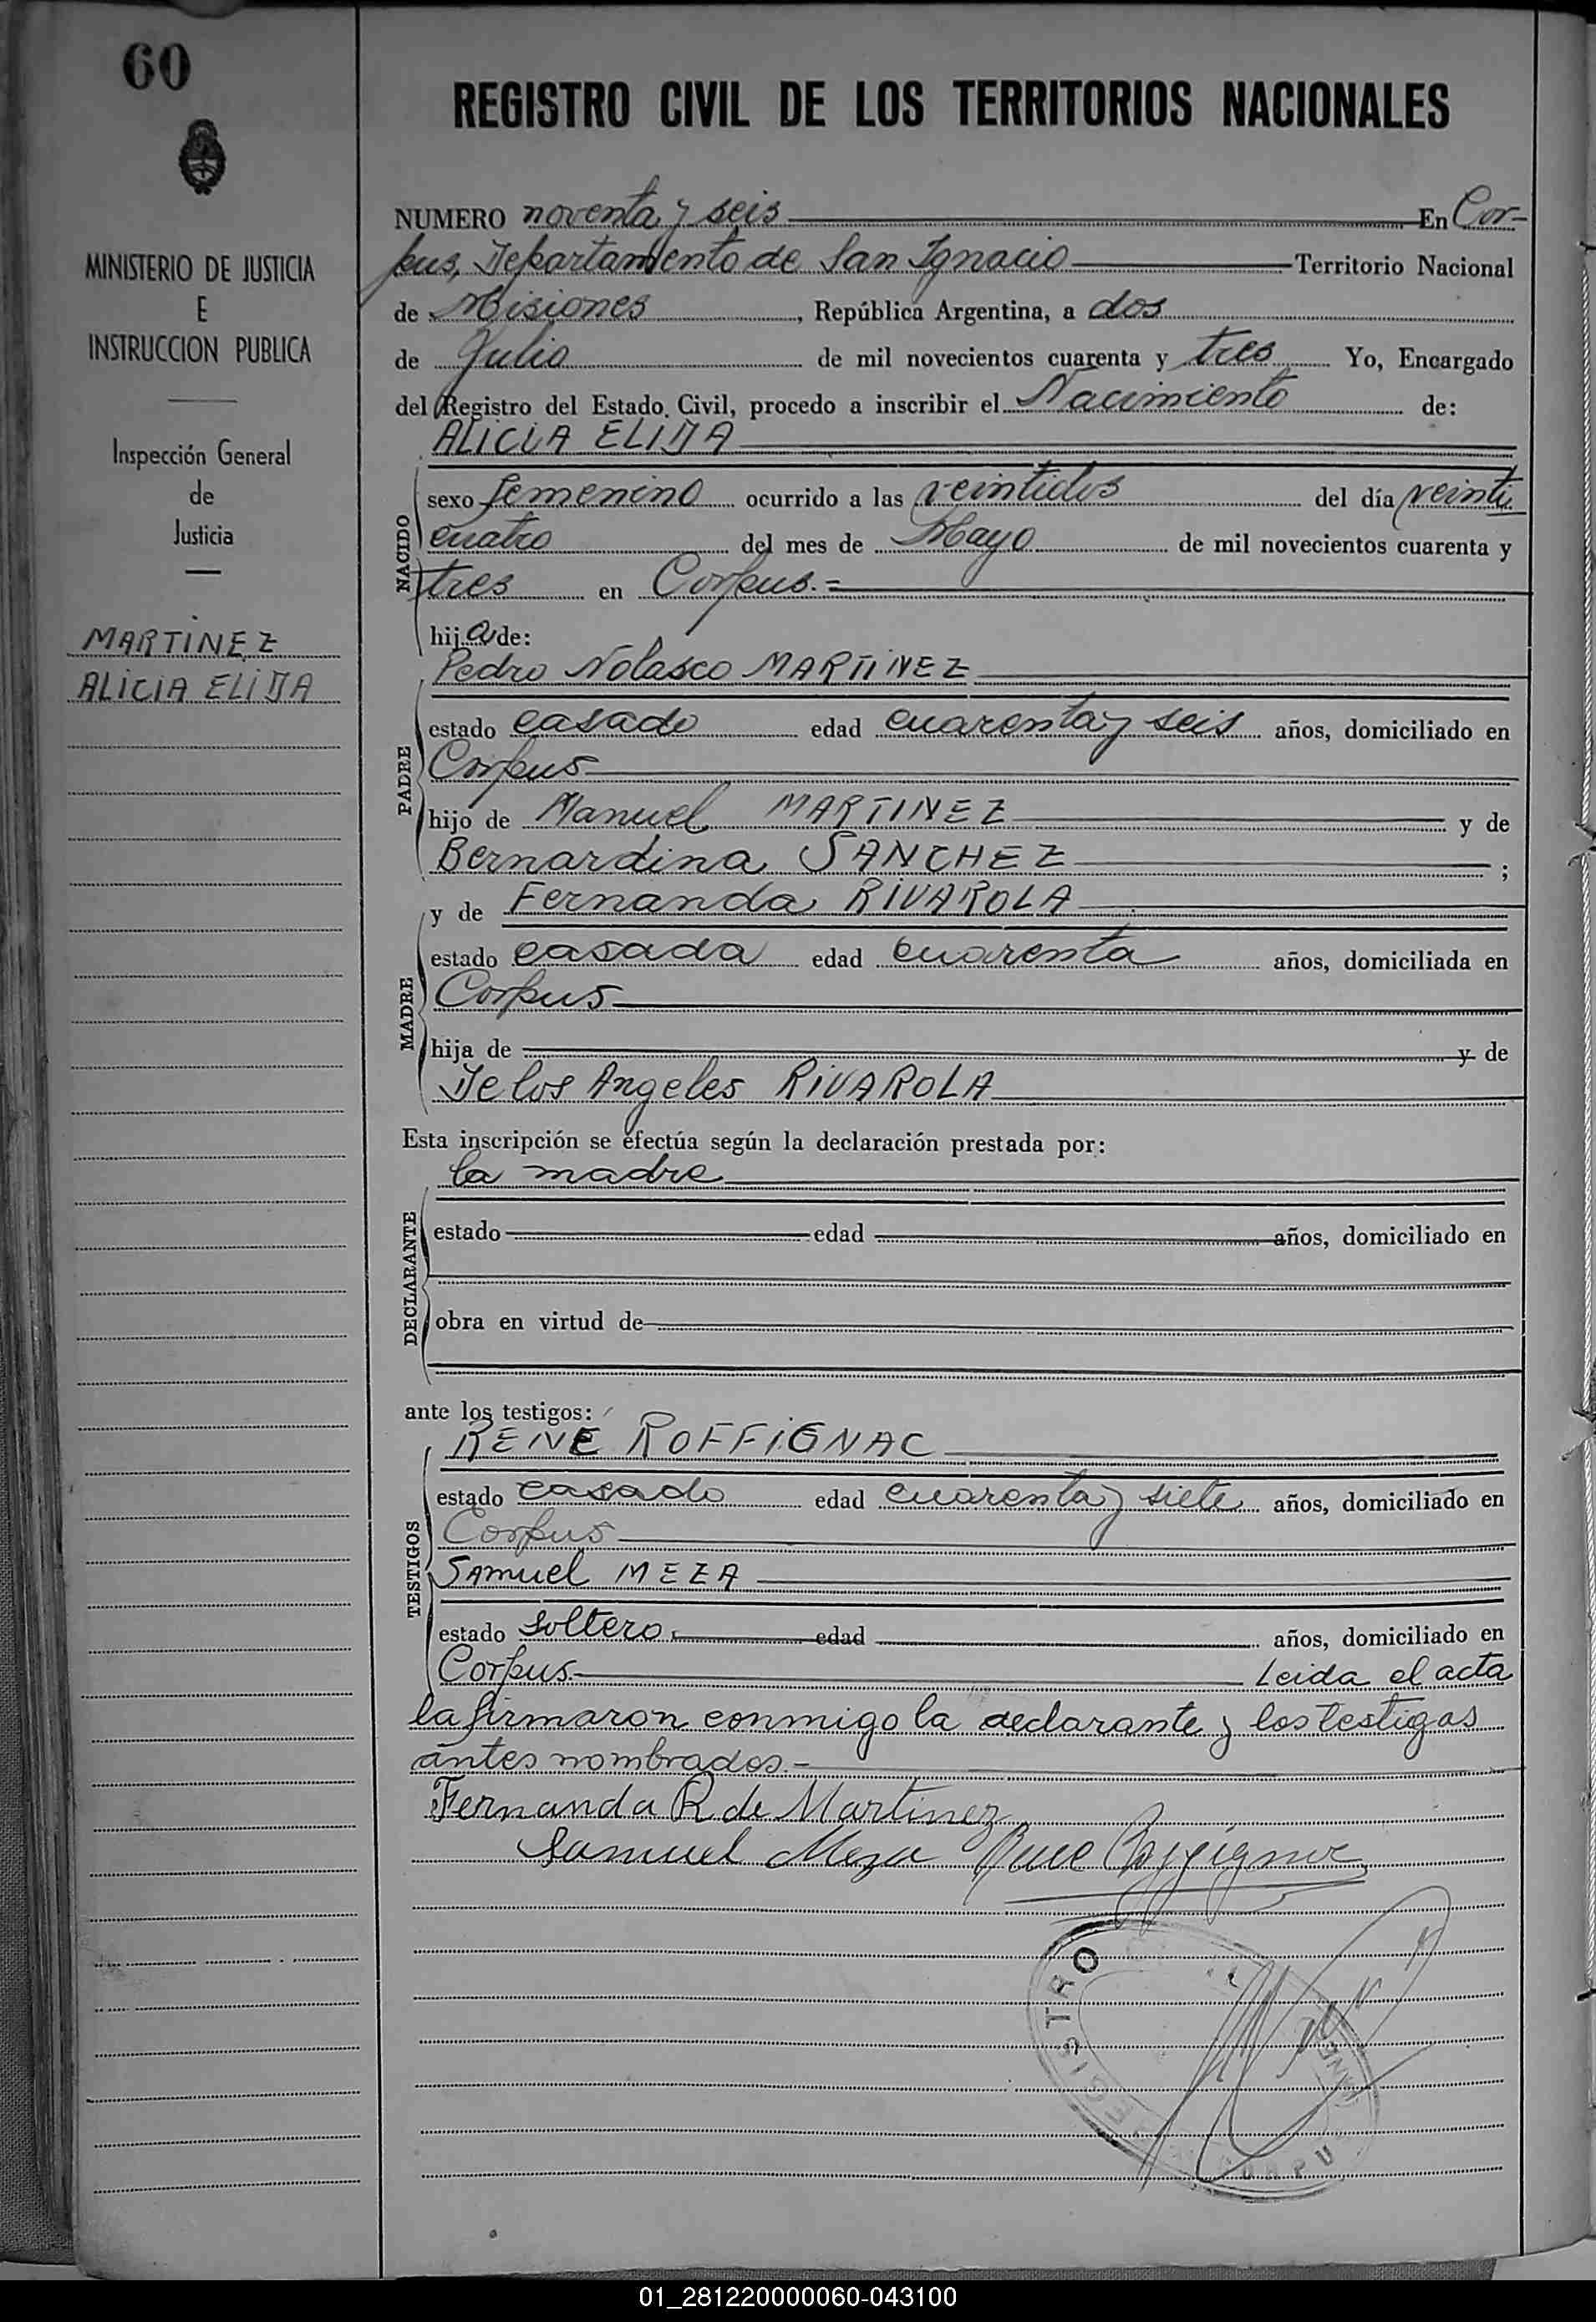 60
MINISTERIO DE JUSTICIA
E
INSTRUCCION PUBLICA
Inspección General
de
Justicia
MARTINEZ
ALICIA ELIDA
REGISTRO CIVIL DE LOS TERRITORIOS NACIONALES
NUMERO noventa y seis En Cor-
pus, Departamento de San Ignacio Territorio Nacional
de Misiones, República Argentina, a dos
de Julio de mil novecientos cuarenta y tres Yo, Encargado
del Registro del Estado Civil, procedo a inscribir el Nacimiento de:
ALICIA ELIDA
NACIDO
sexo femenino ocurrido a las veintidos del día veinti
cuatro del mes de Mayo de mil novecientos cuarenta y
tres en Corpus.=
hija de:
Pedro Nolasco MARTINEZ
PADRE
estado casado edad cuarenta y seis años, domiciliado en
Corpus
hijo de Manuel MARTINEZ y de
Bernardina SANCHEZ ;
y de Fernanda RIVAROLA
MADRE
estado casada edad cuarenta años, domiciliada en
Corpus
hija de y de
De los Angeles RIVAROLA
Esta inscripción se efectúa según la declaración prestada por:
la madre
DECLARANTE
estado edad años, domiciliado en
obra en virtud de
ante los testigos:
RENE ROFFIGNAC
TESTIGOS
estado casado edad cuarenta y siete años, domiciliado en
Corpus
Samuel MEZA
estado soltero. edad años, domiciliado en
Corpus.- Leida el acta
la firmaron conmigo la declarante y los testigos
antes nombrados.-
Fernanda R. de Martinez
Samuel Meza Rene Roffignac
REGISTRO
01_281220000060-043100